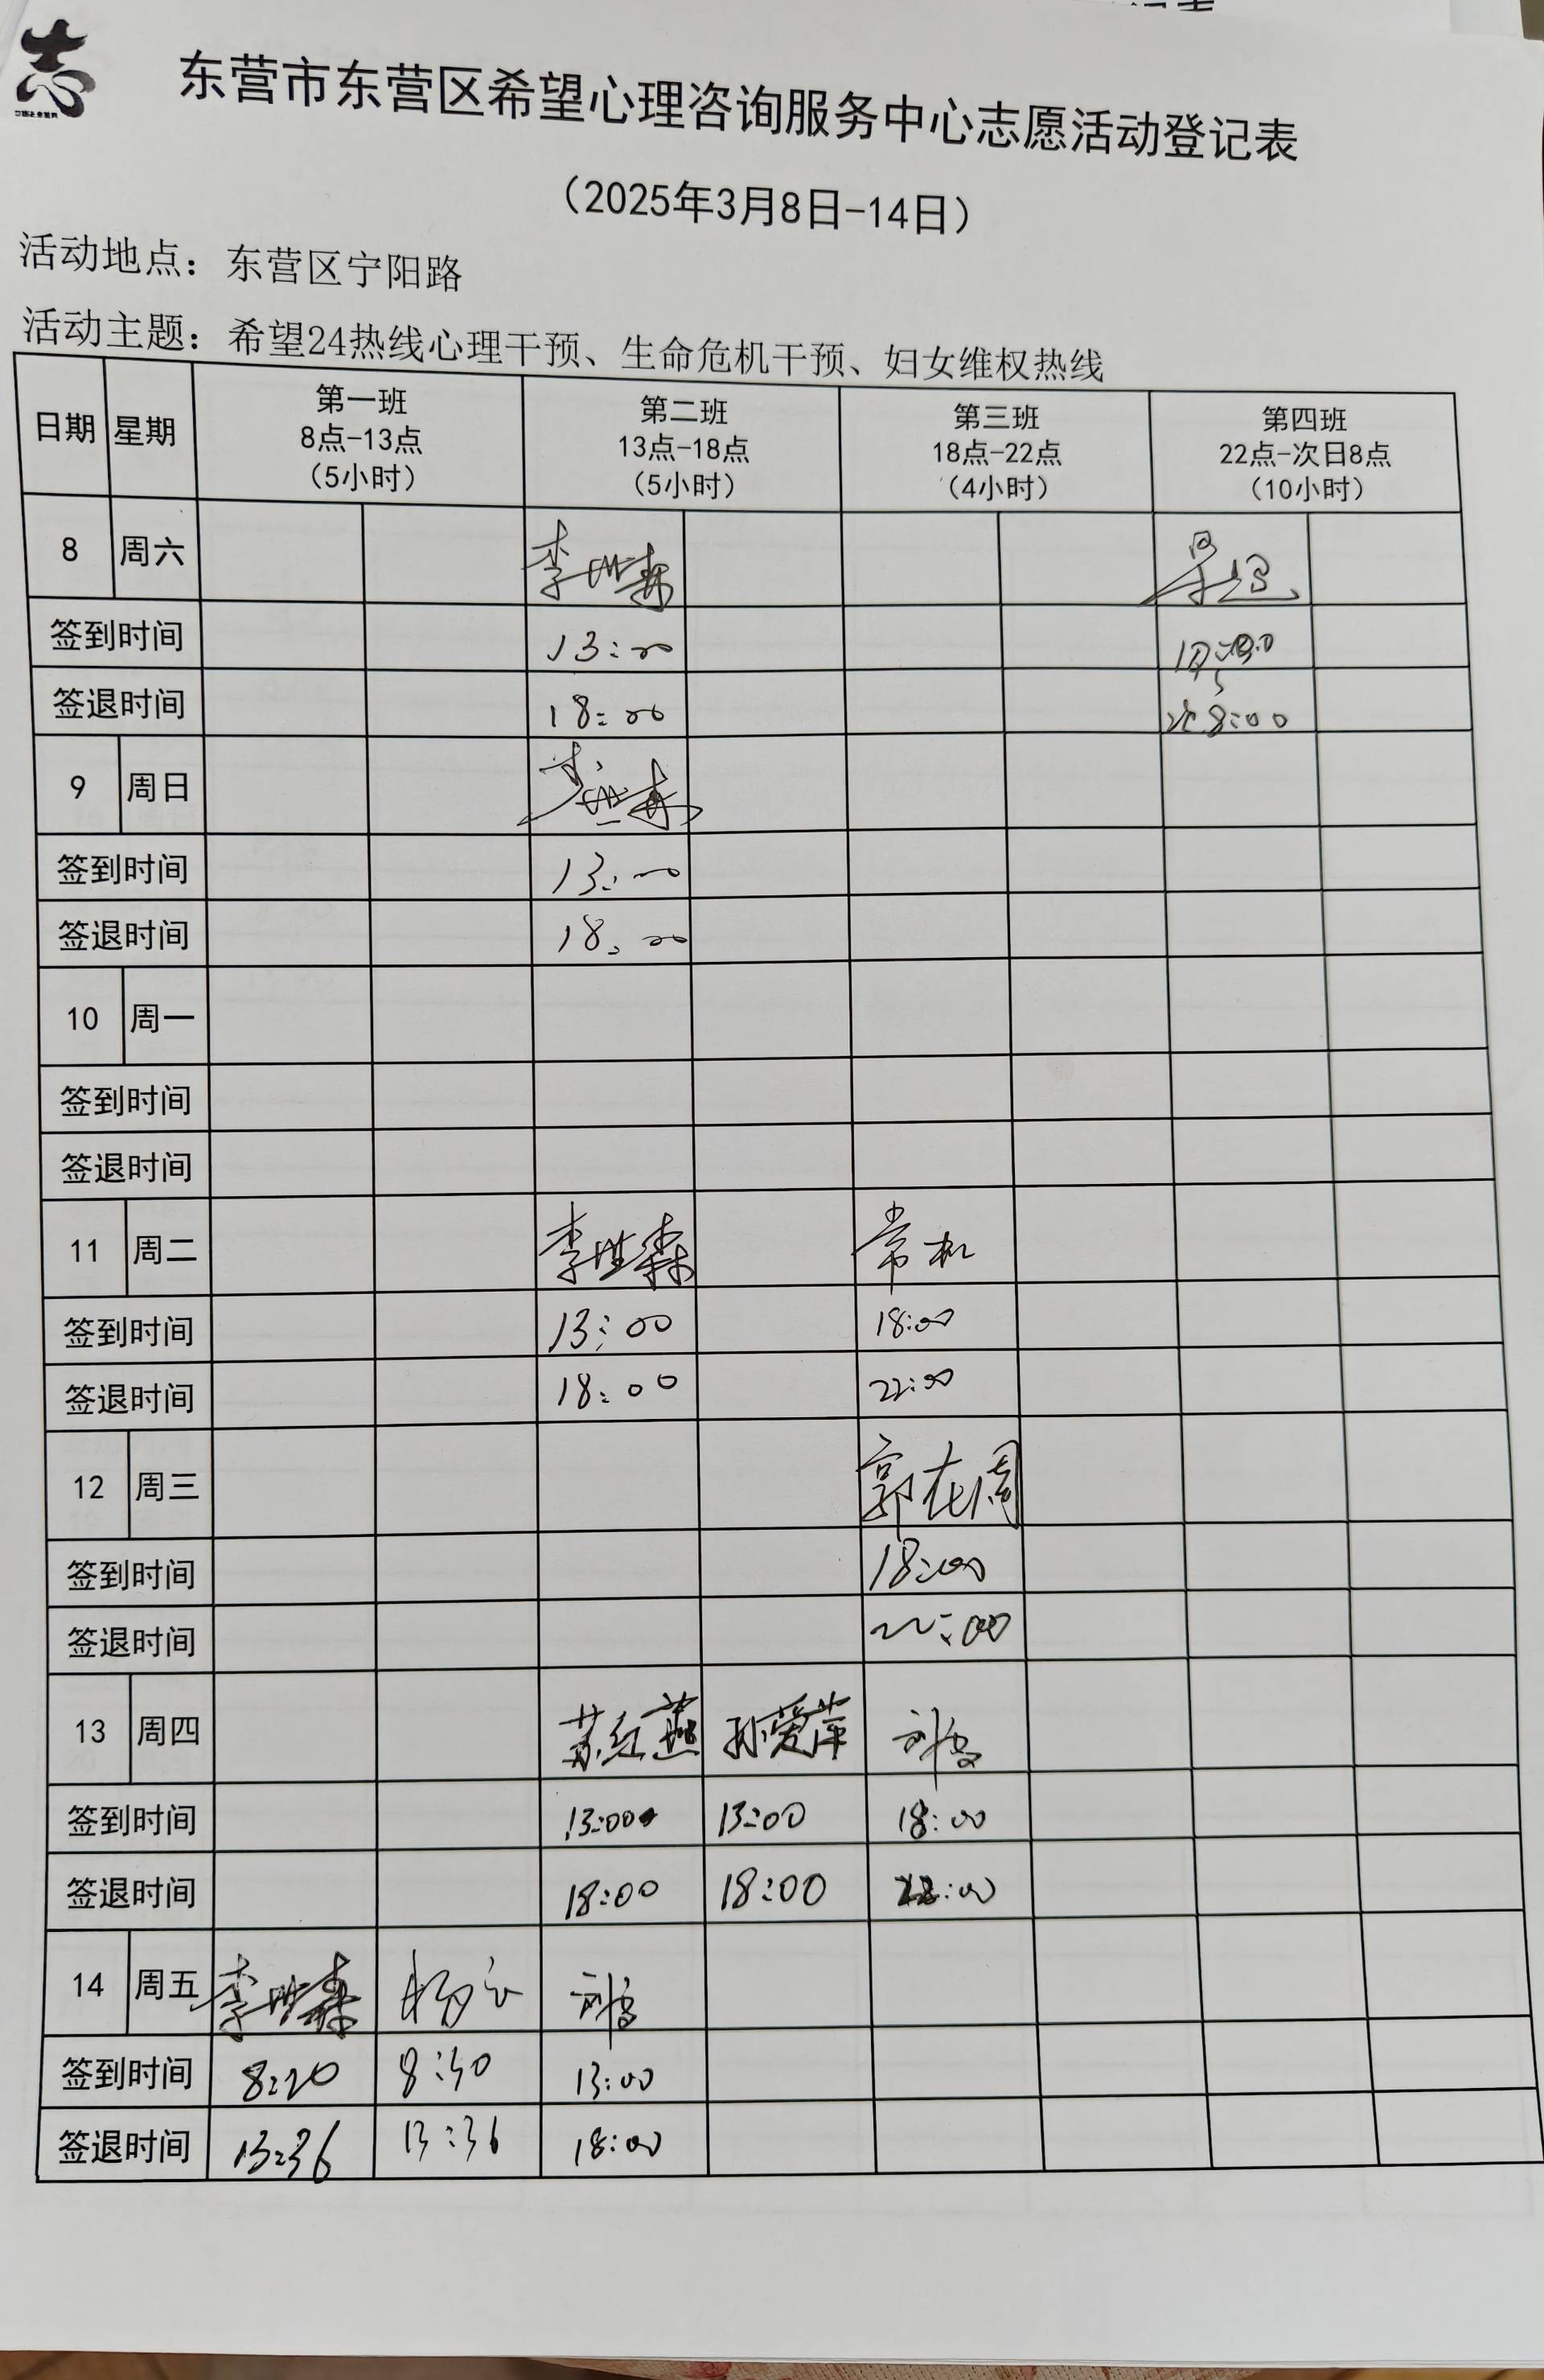 志
东营市东营区希望心理咨询服务中心志愿活动登记表
（2025年3月8日-14日）
活动地点：东营区宁阳路
活动主题：希望24热线心理干预、生命危机干预、妇女维权热线
日期 星期 第一班 8点-13点 （5小时） 第二班 13点-18点 （5小时） 第三班 18点-22点 （4小时） 第四班 22点-次日8点 （10小时）
8 周六 李世森
签到时间 13:00
签退时间 18:00 次8:00
9 周日 李世森
签到时间 13:00
签退时间 18:00
10 周一
签到时间
签退时间
11 周二 李世森 常红
签到时间 13:00 18:00
签退时间 18:00 22:00
12 周三 郭在周
签到时间 18:00
签退时间 22:00
13 周四 苏红燕 孙爱萍
签到时间 13:00 13:00 18:00
签退时间 18:00 18:00 22:00
14 周五 李世森
签到时间 8:20 8:30 13:00
签退时间 13:36 13:36 18:00